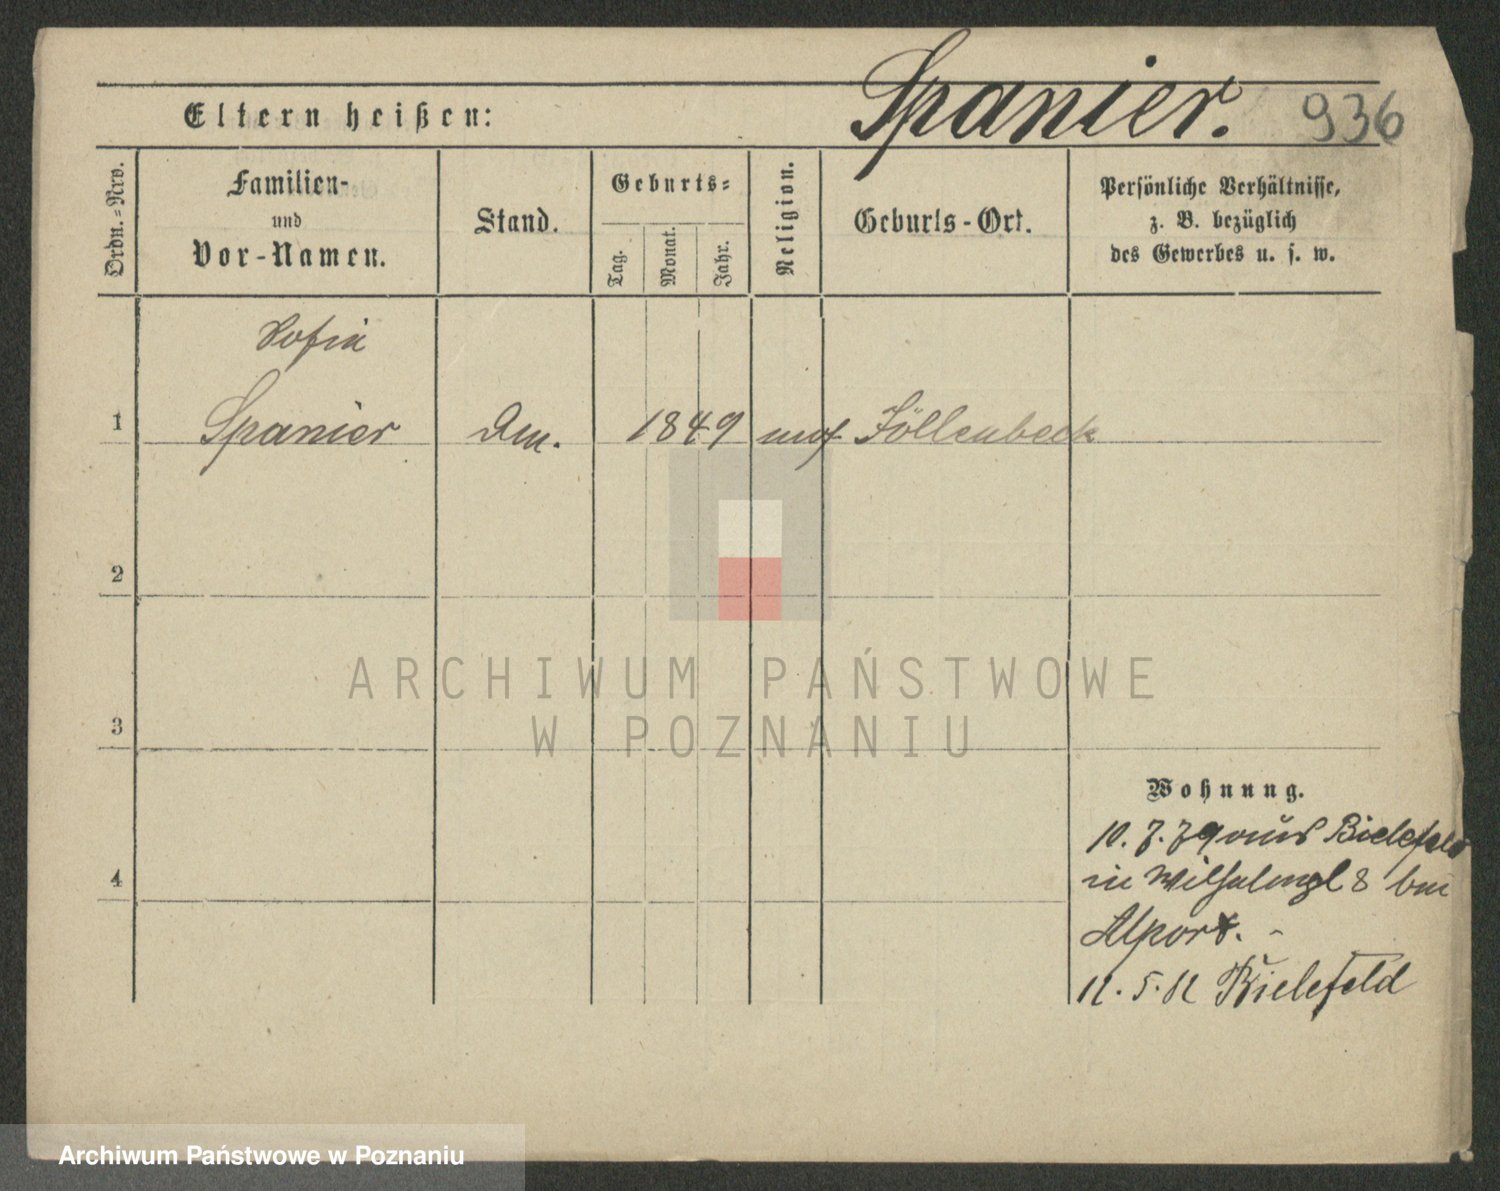 Spanier. 936
Eltern heißen:
Ordn.=Nro.
Familien-
und
Vor-Namen.
Stand.
Geburts=
Tag.
Monat.
Jahr.
Religion.
Geburts-Ort.
Persönliche Verhältnisse,
z. B. bezüglich
des Gewerbes u. s. w.
Sofia
1 Spanier 1849 mos Jöllenbeck
2
3
4
Wohnung.
10. 7. 79 aus Bielefeld
in Wilhelmspl 8 bei
Alport.
Bielefeld
ARCHIWUM PAŃSTWOWE
W POZNANIU
Archiwum Państwowe w Poznaniu